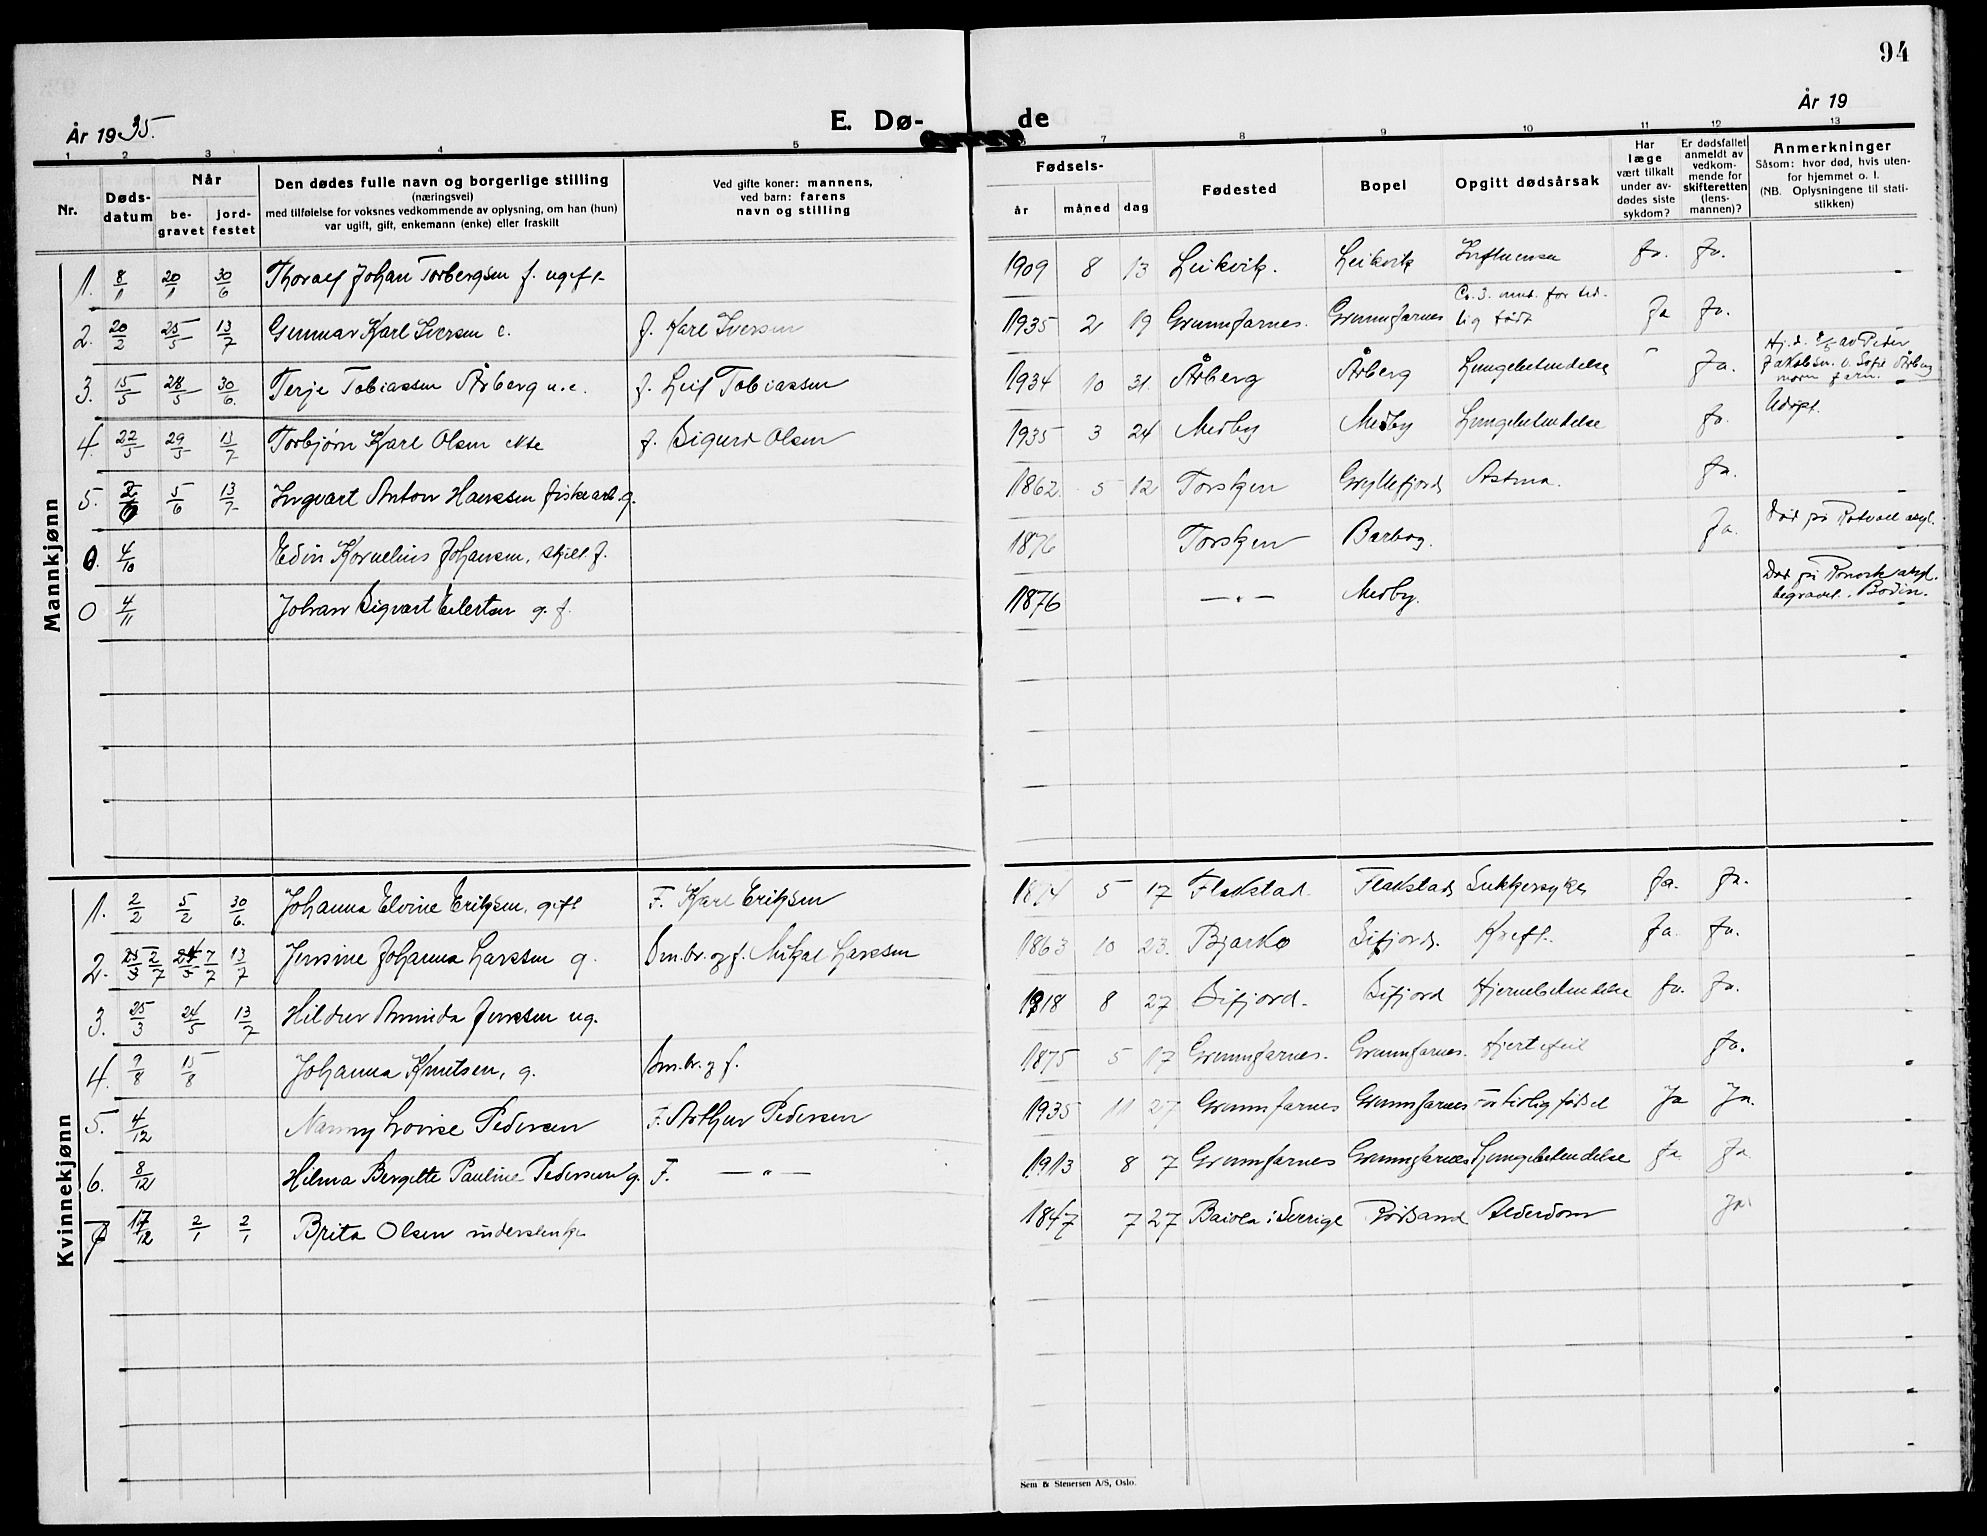 94
År 1935.
E. Dø-
de
År 19
1 2 3 4 5 7 8 9 10 11 12 13
Nr.
Døds-
datum
Når
be-
gravet
jord-
festet
Den dødes fulle navn og borgerlige stilling
(næringsvei)
med tilføielse for voksnes vedkommende av oplysning, om han (hun)
var ugift, gift, enkemann (enke) eller fraskilt
Ved gifte koner: mannens,
ved barn: farens
navn og stilling
Fødsels-
år måned dag
Fødested
Bopel
Opgitt dødsårsak
Har
læge
vært tilkalt
under av-
dødes siste
sykdom?
Er dødsfallet
anmeldt av
vedkom-
mende for
skifteretten
(lens-
mannen)?
Anmerkninger
Såsom: hvor død, hvis uten-
for hjemmet o. l.
(NB. Oplysningene til stati-
stikken)
Mannkjønn
1. 8/1 20/1 30/6 Thoralf Johan Torbergsen f. ugift 1909 8 13 Leikvik. Leikvik Influensa Ja. Ja.
2. 20/2 25/5 13/7 Gunnar Karl Iversen e. f. Karl Iversen 1935 2 19 Grunnfarnes. Grunnfarnes Ca. 3. mnd. for tid-
lig født Ja Ja.
3. 15/5 28/5 30/6. Terje Tobiassen Årberg u.e. f. Leif Tobiassen 1934 10 31 Årberg Årberg Lungebetendelse Ja. Hj.d. av Peder
Jakobsen. v. Sofie Årberg
Adopt.
4. 22/5 29/5 13/7 Torbjørn Karl Olsen ekte f. Sigurd Olsen 1935 3 24 Medby Medby Lungebetendelse Ja.
5. 2/6 5/6 13/7 Ingvart Anton Hanssen fiskearb. g. 1862 5 12 Torsken Gryllefjord Astma. Ja.
0. 4/10 Edin Kornelius Johansen, skilt f. 1876 Torsken Barbog. Ja. Død på Rotvoll asyl.
0 4/11 Johan Sigvart Eilertsen g. f. 1876 — " — Medby. Død på Rønvik asyl.
begravet. Bodin.
Kvinnekjønn
1. 2/2 5/2 30/6. Johanna Elvine Eriksen, gift F. Karl Eriksen 5 17 Flakstad Flakstad Sukkersyke Ja. Ja.
2. 2/7 7/7 13/7 Jensine Johanna Larssen g. Sm.br. og f. Mikal Larssen 1863 10 23. Bjarkø Sifjord. Kreft. Ja. Ja.
3. 25/3 24/5 13/7 Hildur Aminda Jenssen ug. 1918 8 27 Sifjord. Sifjord Hjernebetendelse Ja. Ja.
4. 7/8 15/8 Johanna Knutsen, g. Sm.br. og f. 1875 5 17 Grunnfarnes. Grunnfarnes. Hjertefeil Ja.
5. 4/12 Nanny Lovise Pedersen F. Arthur Pedersen 1935 11 27 Grunnfarnes Grunnfarnes For tidlig fødsel Ja Ja.
6. 8/12 Hilma Bergitte Pauline Pedersen g. F. — " — 1913 8 7 Grunnfarnes Grunnfarnes Lungebetendelse Ja Ja
7 17/12 2/1 2/1 Brita Olsen understenke 1847 7 27 i Sverige Rødsand Alderdom Ja
Sem & Stenersen A/S, Oslo.